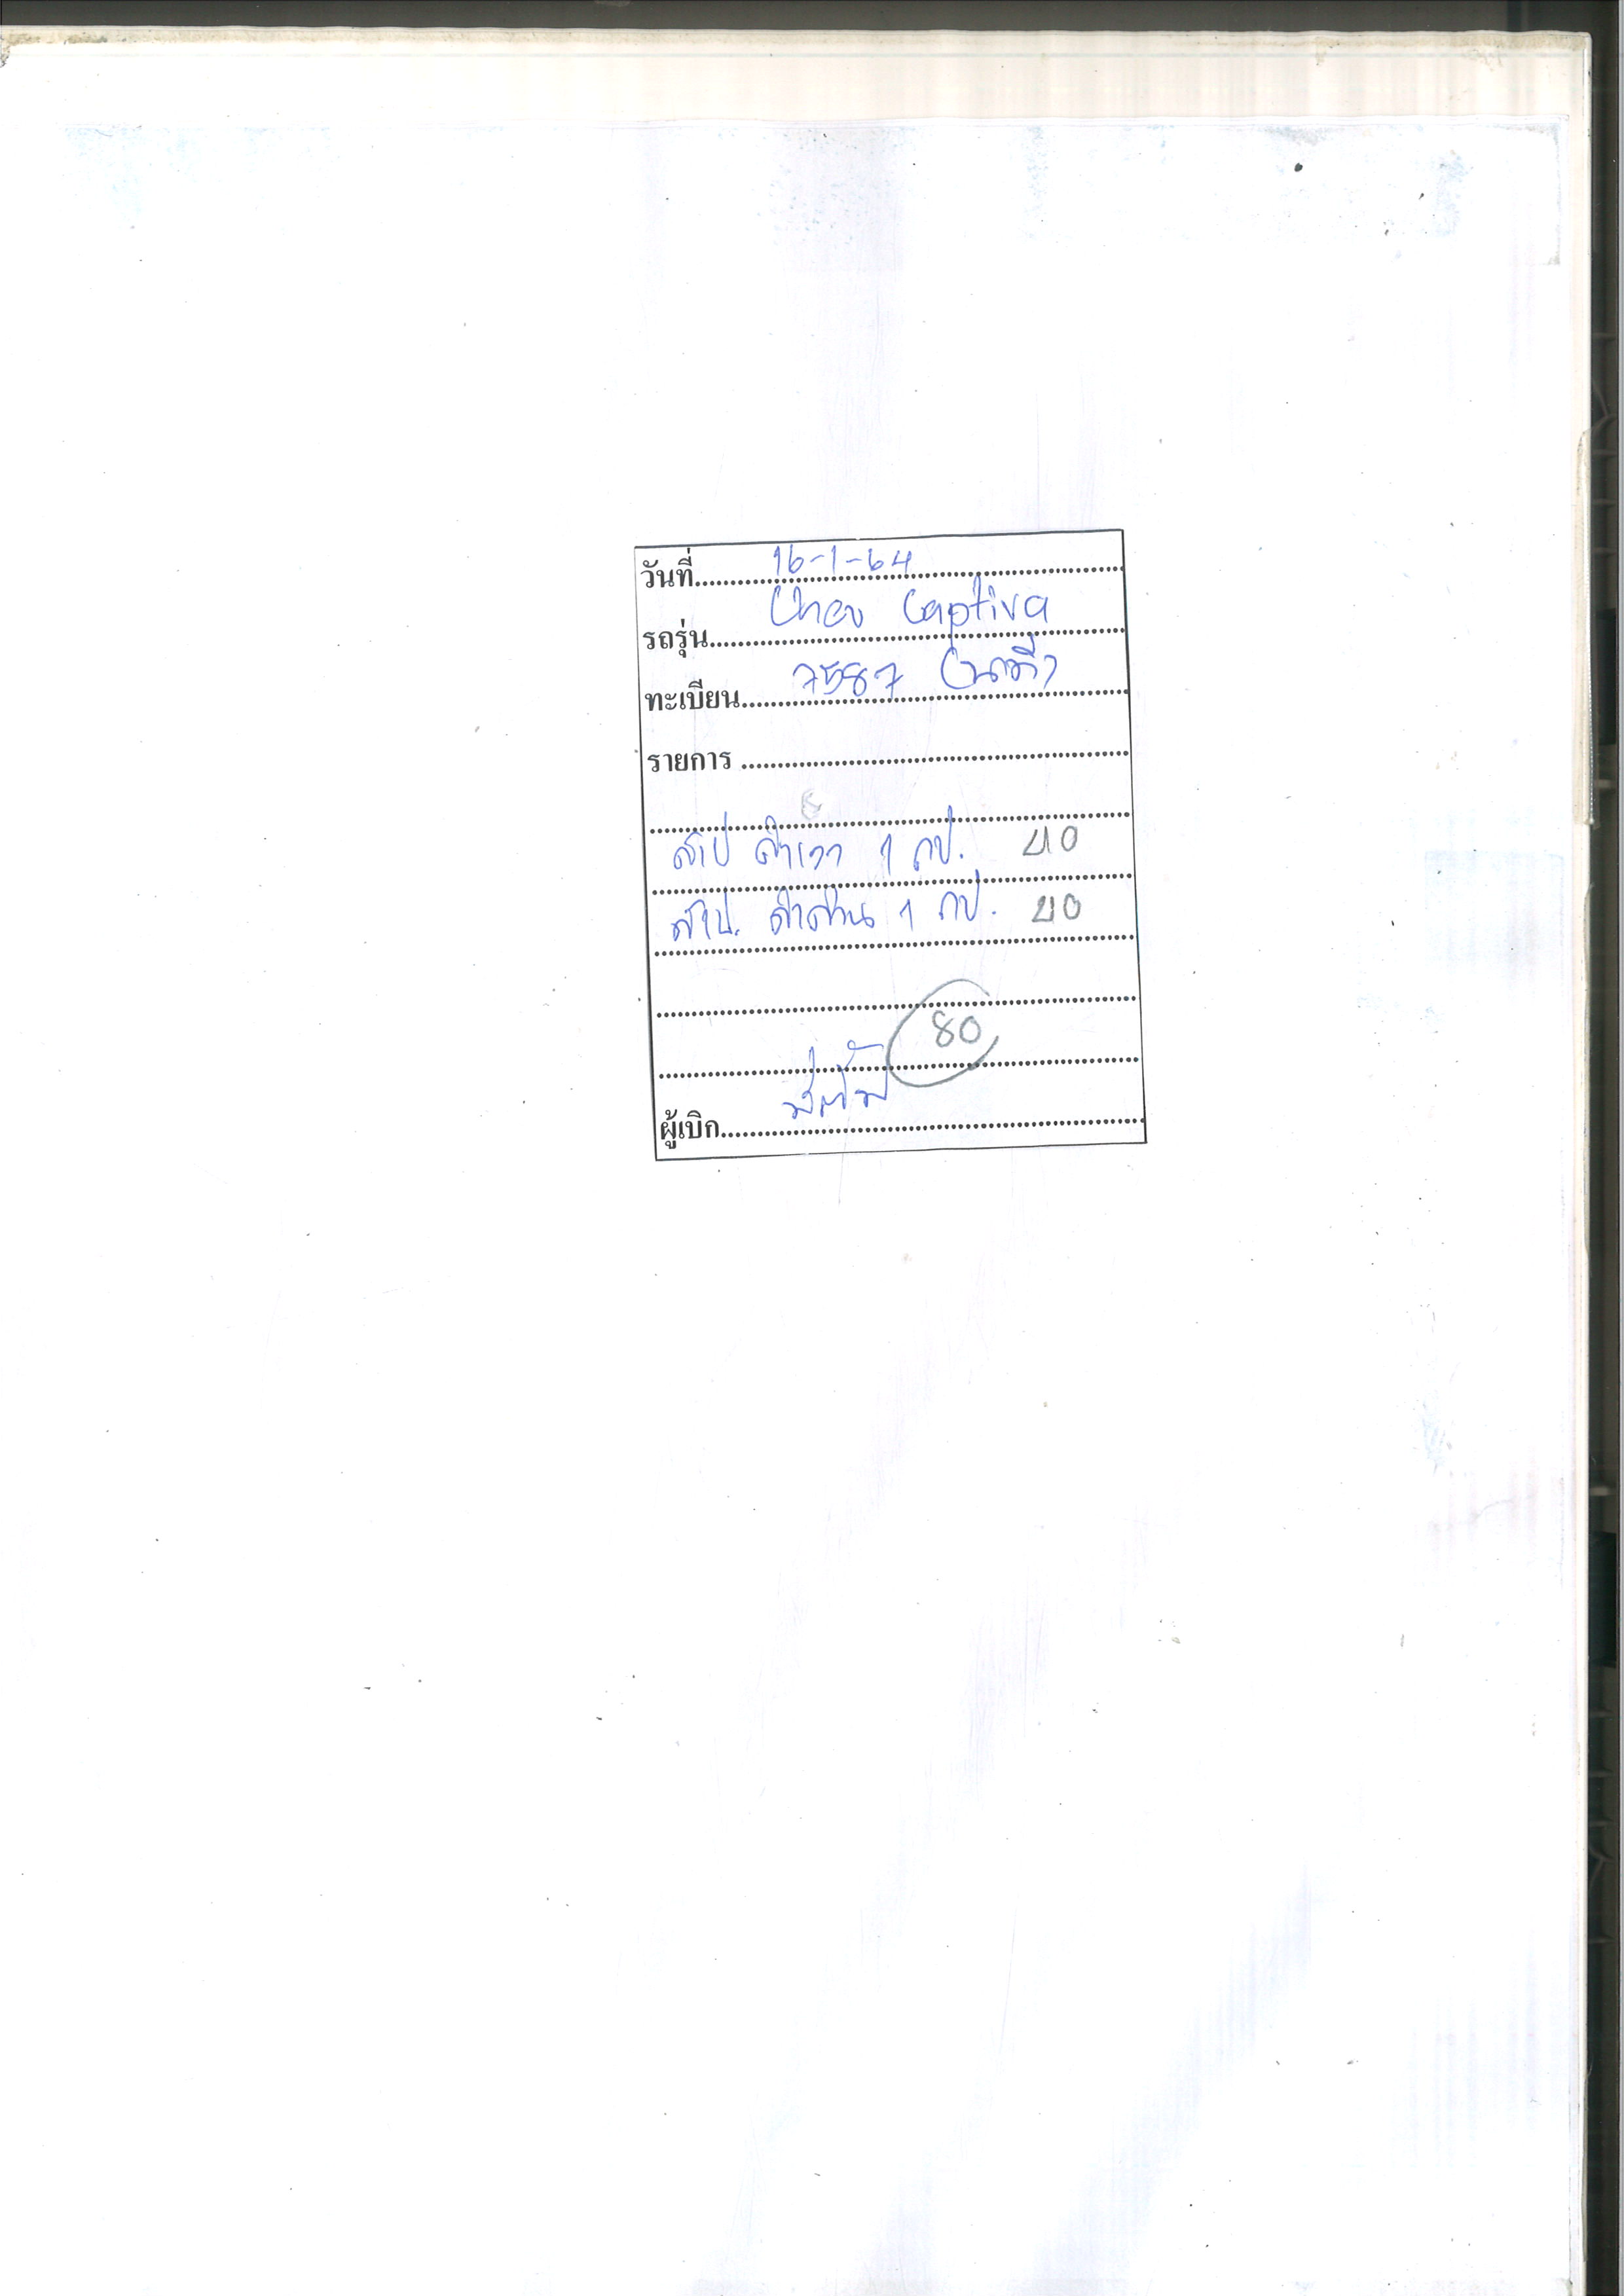 วันที่ 16-1-64
รถรุ่น Chev Captiva
ทะเบียน 7587
รายการ
สเป ดำเงา 1 กป. 40
สเป. ดำด้าน 1 กป. 40
80
ผู้เบิก